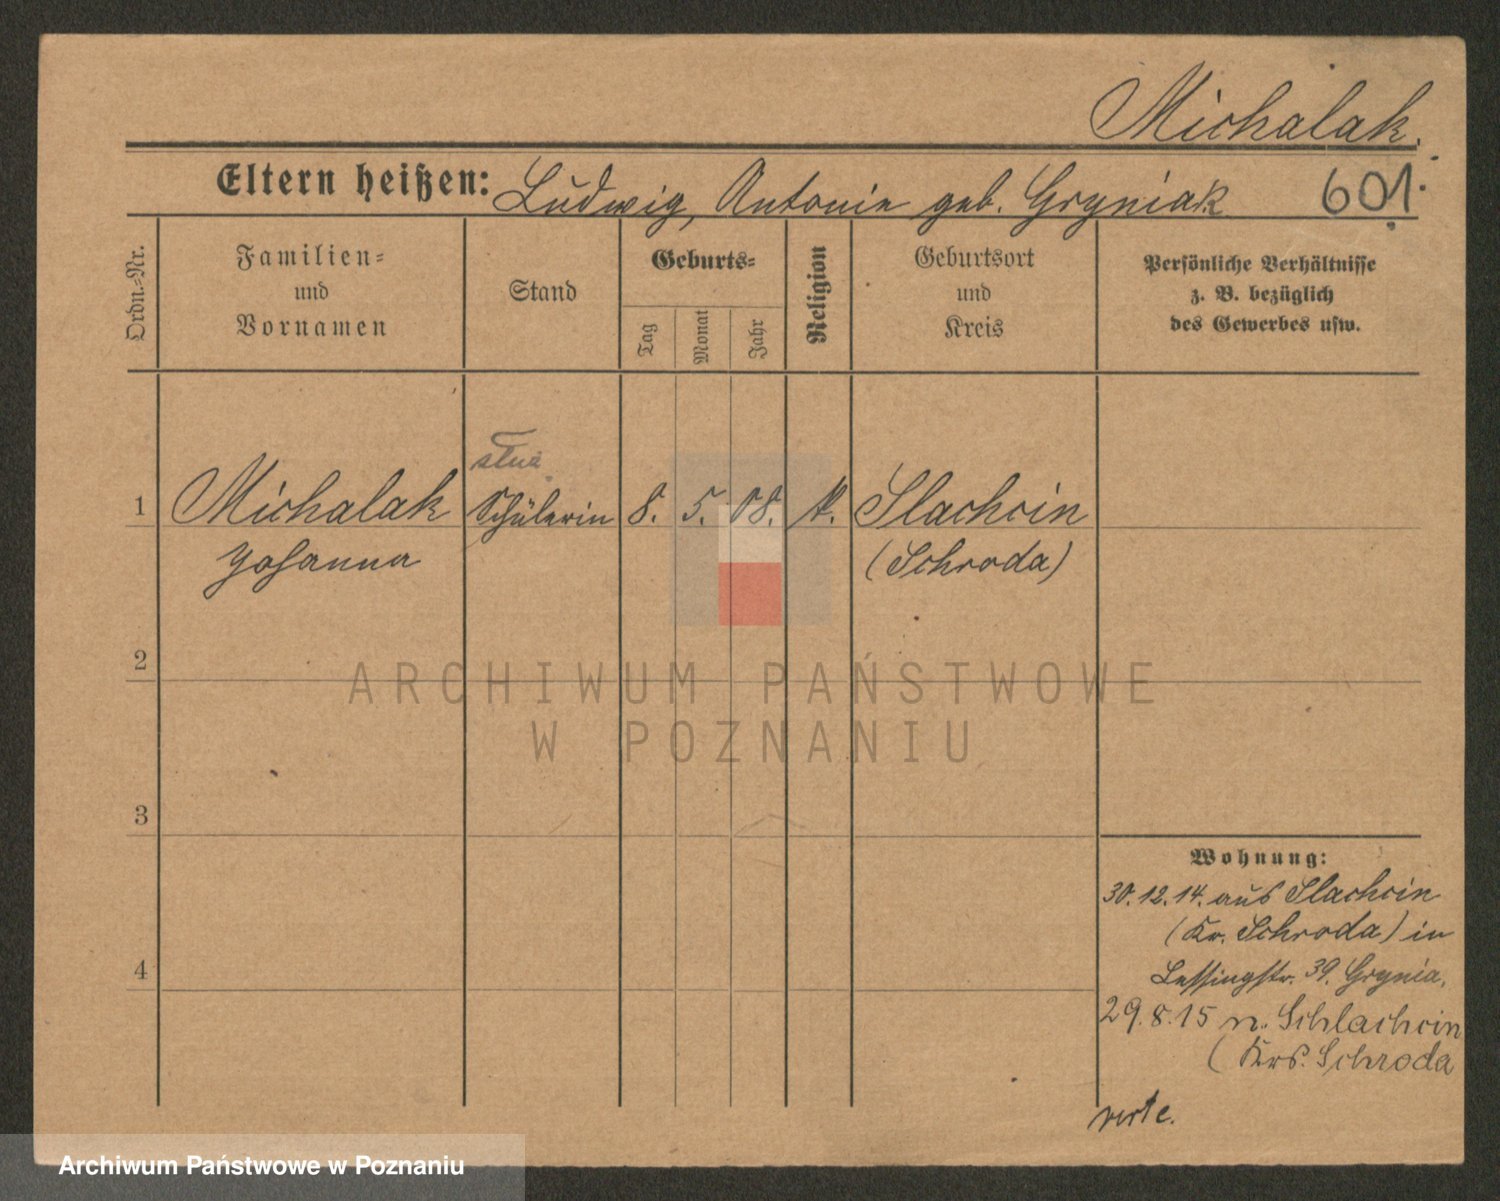 Michalak.
Eltern heißen: Ludwig, Antonie geb. Gryniak 601.
Ordn.-Nr.
Familien-
und
Vornamen
Stand
Geburts-
Tag
Monat
Jahr
Religion
Geburtsort
und
Kreis
Persönliche Verhältnisse
z. B. bezüglich
des Gewerbes usw.
1 Michalak Schülerin 8. 5. 08. k. Slachcin
Johanna (Schroda)
2
3
4
Wohnung:
30.12.14. aus Slachcin
(Kr. Schroda) in
Lessingstr. 39. Grynia.
29.8.15 n. Schlachcin
(Krs. Schroda
verte.
ARCHIWUM PAŃSTWOWE
W POZNANIU
Archiwum Państwowe w Poznaniu